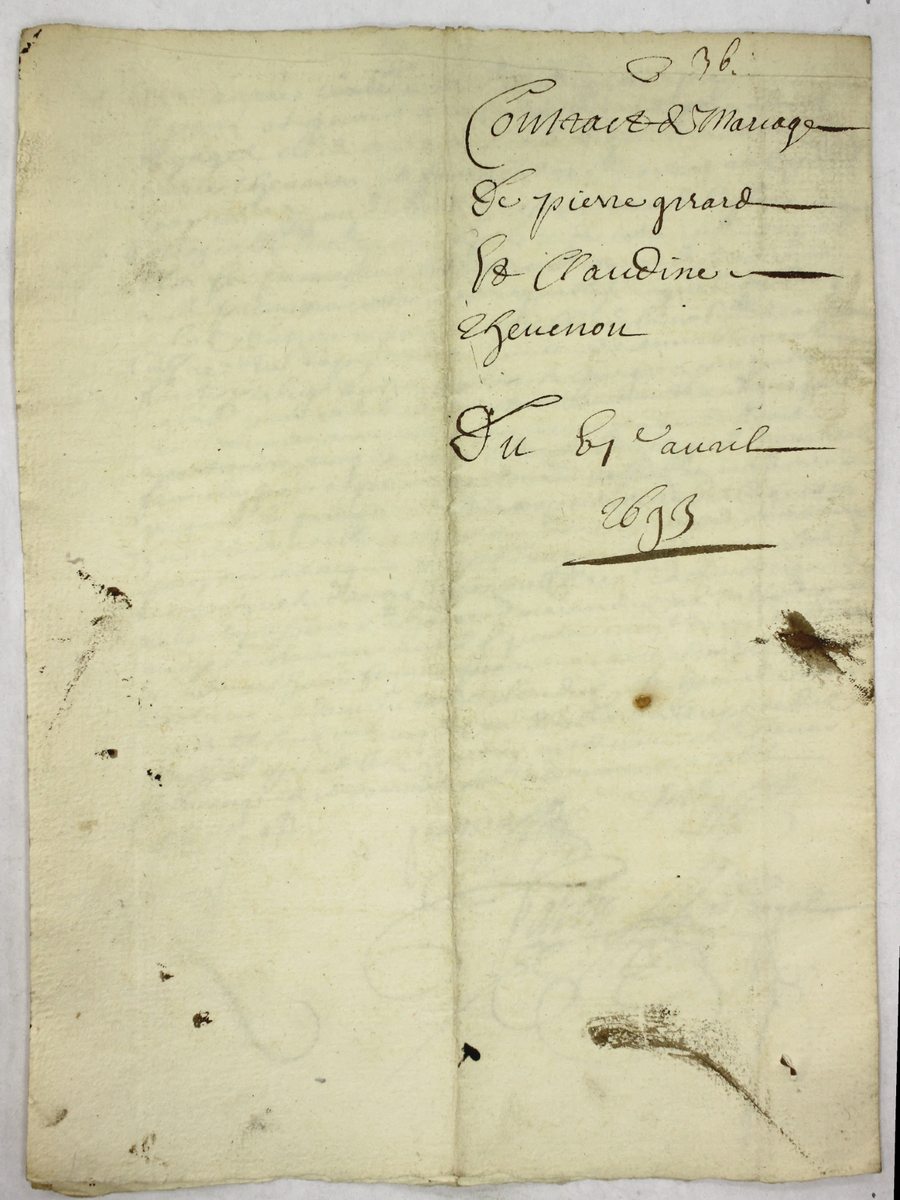 36.
Contract de Mariage
De pierre girard
Et Claudine
thevenon
Du avril
1693